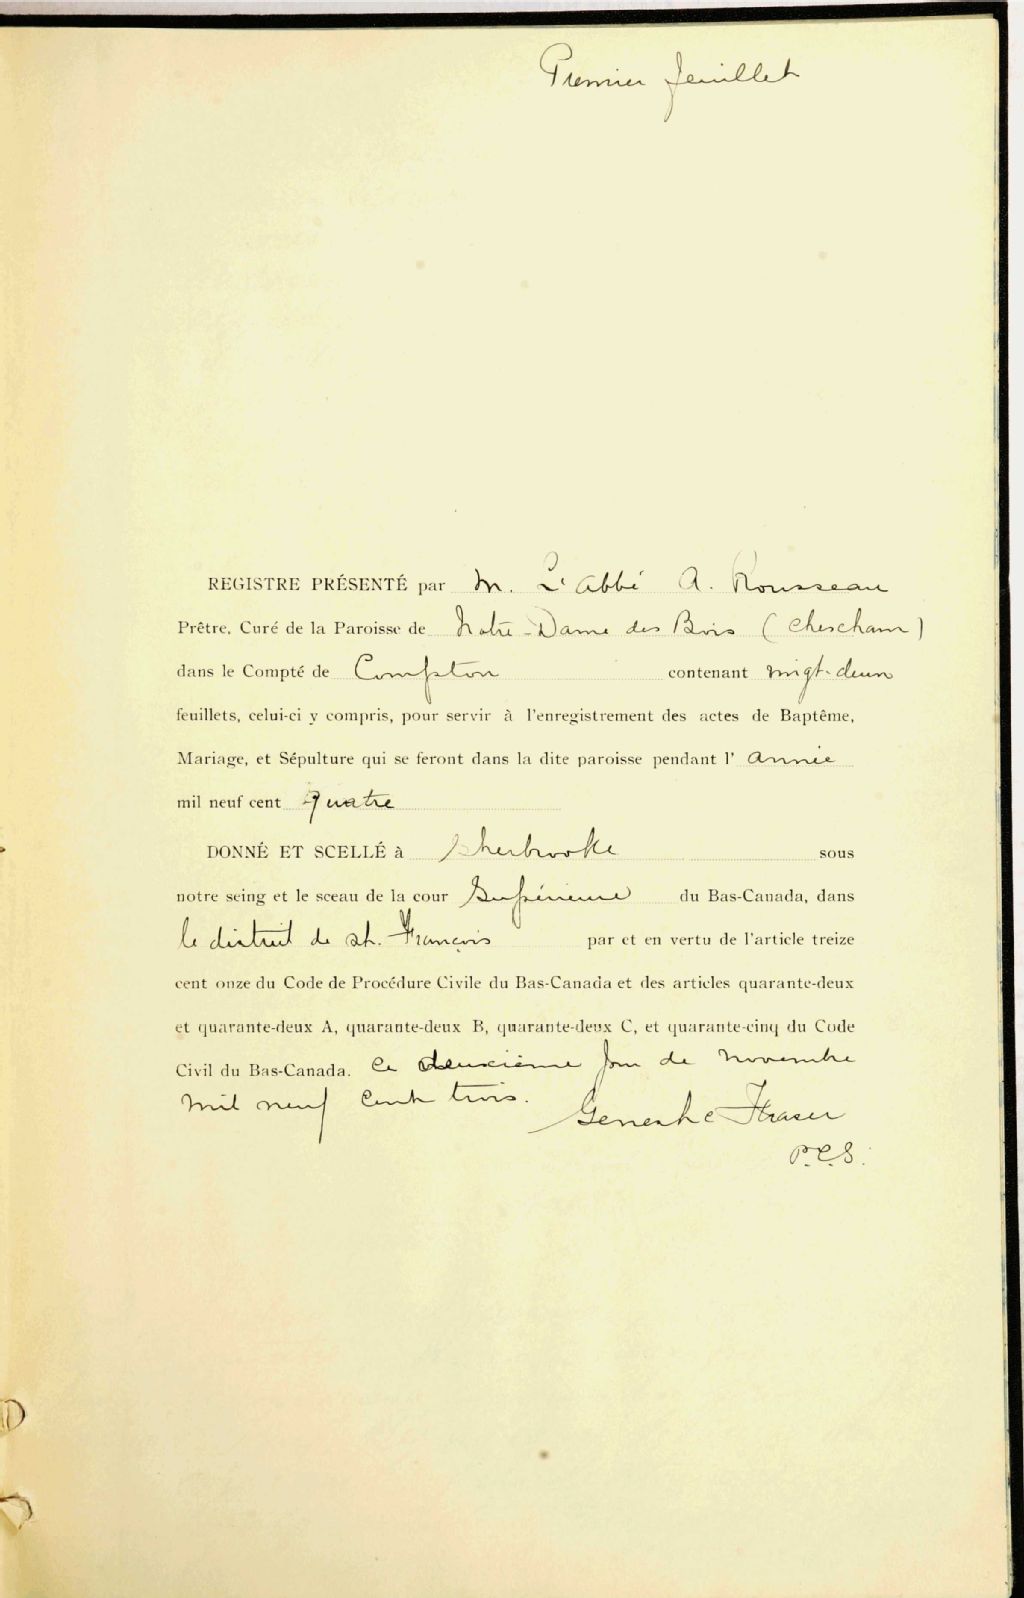 Premier feuillet
REGISTRE PRÉSENTÉ par M. L'abbé A. Rousseau
Prêtre, Curé de la Paroisse de Notre-Dame des Bois (Chescham)
dans le Compté de Compton contenant vingt-deux
feuillets, celui-ci y compris, pour servir à l'enregistrement des actes de Baptême,
Mariage, et Sépulture qui se feront dans la dite paroisse pendant l' année
mil neuf cent quatre
DONNÉ ET SCELLÉ à Sherbrooke sous
notre seing et le sceau de la cour Supérieure du Bas-Canada, dans
le district de st. François par et en vertu de l'article treize
cent onze du Code de Procédure Civile du Bas-Canada et des articles quarante-deux
et quarante-deux A, quarante-deux B, quarante-deux C, et quarante-cinq du Code
Civil du Bas-Canada. Ce deuxième jour de novembre
mil neuf cent trois.
Fraser
P.C.S.